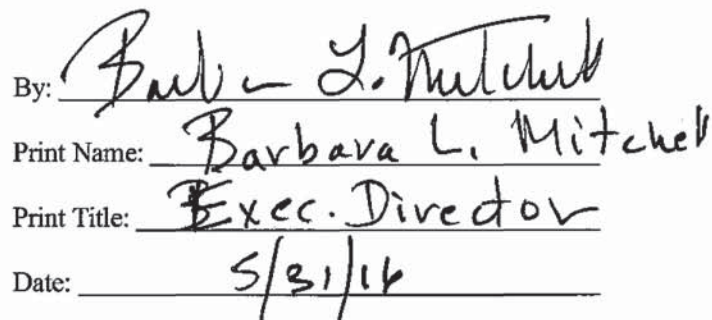 By: Barbara L. Mitchell
Print Name: Barbara L. Mitchell
Print Title: Exec. Director
Date: 5/31/16